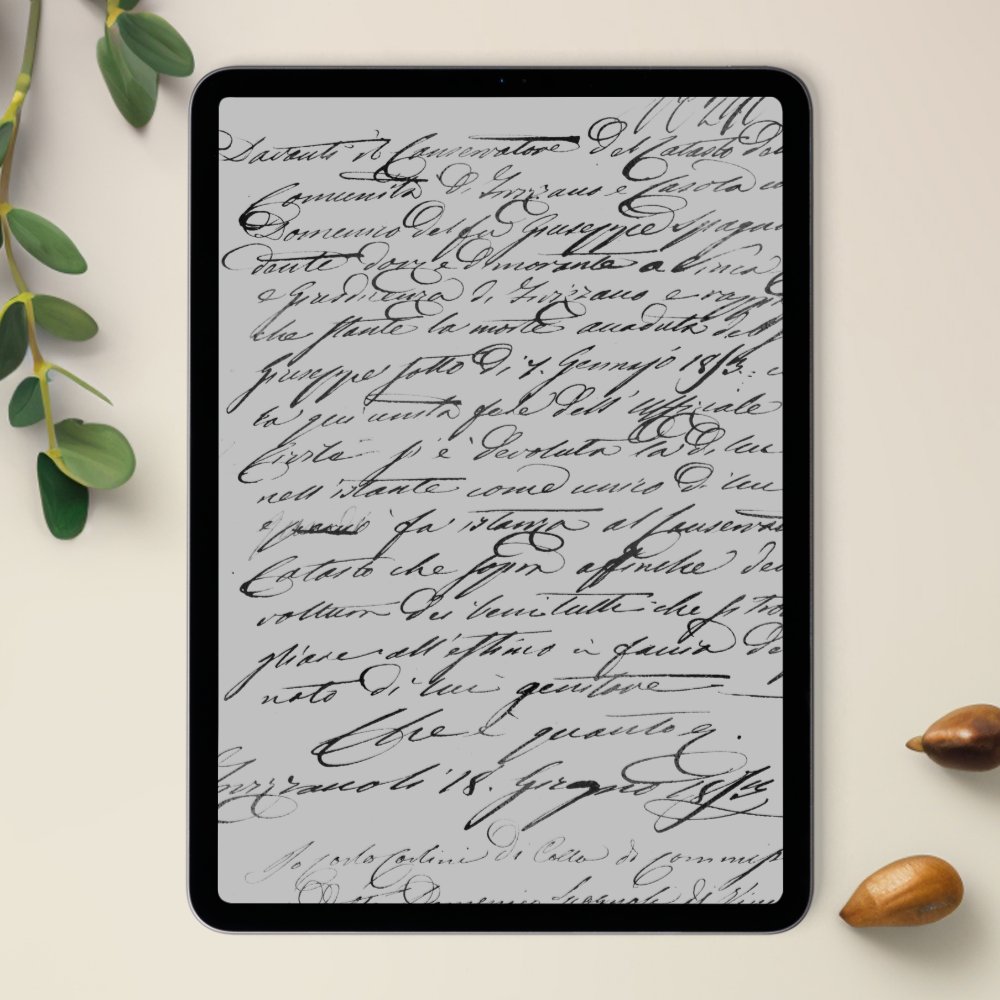 Davanti il Conservatore del Catasto del
Comunità di Fivizzano e Casola
Domenico del fu Giuseppe Spagn
dente dove e dimorante a Vinca
e Giusdicenza di Fivizzano e
che stante la morte accaduta dell
Giuseppe sotto di 7. Gennajo
ta qui unita fede dell' Uffiziale
Civile s' è devoluta la di lui
nell' istante come unico di lui
e fa istanza al Conservat
Catasto che sopra affinche
voltura dei beni tutti che si tro
gliare all' estimo in faccia De
nato di lui genitore
Che è quanto
Fivizzano li 18. Giugno
Io Carlo Carlini di Colla di commis
Domenico Spagnoli di Vin